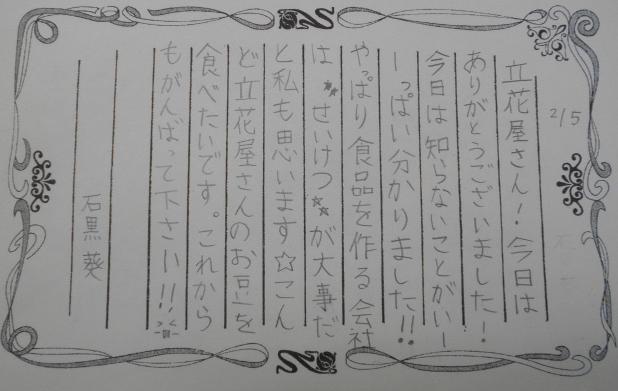 2/5
立花屋さん！今日は
ありがとうございました！
今日は知らないことがいー
ーっぱい分かりました!!
やっぱり食品を作る会社
は☆せいけつ☆が大事だ
と私も思います☆こん
ど立花屋さんのお豆を
食べたいです。これから
もがんばって下さい!!
石黒葵